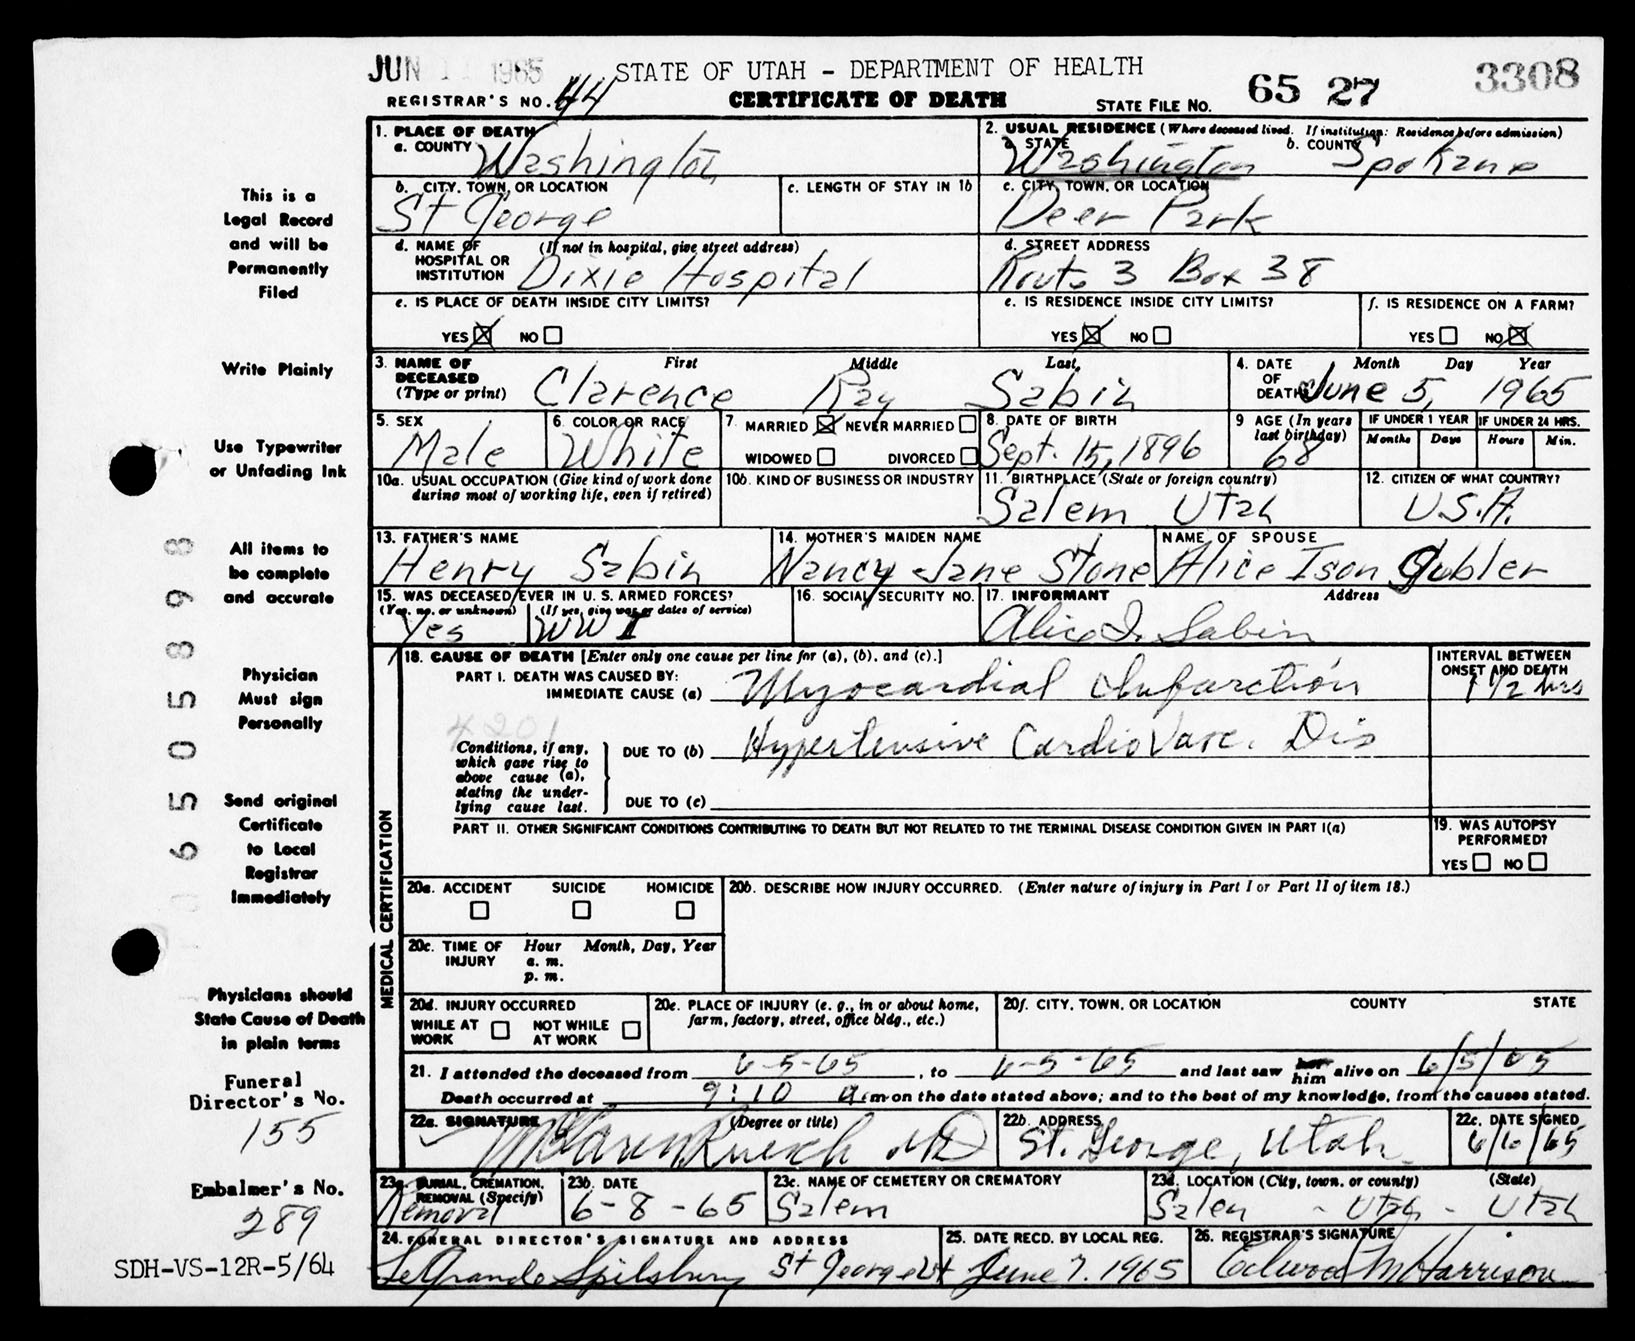 JUN 1965 STATE OF UTAH - DEPARTMENT OF HEALTH 3308
REGISTRAR'S NO. 44 CERTIFICATE OF DEATH STATE FILE NO. 65 27
1. PLACE OF DEATH
a. COUNTY Washington
2. USUAL RESIDENCE (Where deceased lived. If institution: Residence before admission)
a. STATE Washington b. COUNTY Spokane
b. CITY, TOWN, OR LOCATION
St George
c. LENGTH OF STAY IN 1b
c. CITY, TOWN, OR LOCATION
Deer Park
d. NAME OF HOSPITAL OR INSTITUTION (If not in hospital, give street address)
Dixie Hospital
d. STREET ADDRESS
Route 3 Box 38
e. IS PLACE OF DEATH INSIDE CITY LIMITS?
YES ☒ NO ☐
e. IS RESIDENCE INSIDE CITY LIMITS?
YES ☒ NO ☐
f. IS RESIDENCE ON A FARM?
YES ☐ NO ☒
3. NAME OF DECEASED (Type or print) First Middle Last
Clarence Ray Sabin
4. DATE OF DEATH Month Day Year
June 5, 1965
5. SEX
Male
6. COLOR OR RACE
White
7. MARRIED ☒ NEVER MARRIED ☐
WIDOWED ☐ DIVORCED ☐
8. DATE OF BIRTH
Sept. 15, 1896
9 AGE (In years last birthday)
68
IF UNDER 1 YEAR
Months Days
IF UNDER 24 HRS.
Hours Min.
10a. USUAL OCCUPATION (Give kind of work done
during most of working life, even if retired)
10b. KIND OF BUSINESS OR INDUSTRY
11. BIRTHPLACE (State or foreign country)
Salem Utah
12. CITIZEN OF WHAT COUNTRY?
U.S.A.
13. FATHER'S NAME
Henry Sabin
14. MOTHER'S MAIDEN NAME
Nancy Jane Stone
NAME OF SPOUSE
Alice Ison Gubler
15. WAS DECEASED EVER IN U.S. ARMED FORCES?
(Yes, no, or unknown) (If yes, give war or dates of service)
Yes WW I
16. SOCIAL SECURITY NO.
17. INFORMANT Address
Alice I. Sabin
18. CAUSE OF DEATH [Enter only one cause per line for (a), (b), and (c).]
INTERVAL BETWEEN ONSET AND DEATH
PART I. DEATH WAS CAUSED BY:
IMMEDIATE CAUSE (a) Myocardial Infarction 1 1/2 hrs
4201
Conditions, if any, which gave rise to above cause (a), stating the underlying cause last.
DUE TO (b) Hypertensive CardioVasc. Dis
DUE TO (c)
PART II. OTHER SIGNIFICANT CONDITIONS CONTRIBUTING TO DEATH BUT NOT RELATED TO THE TERMINAL DISEASE CONDITION GIVEN IN PART I(a)
19. WAS AUTOPSY PERFORMED?
YES ☐ NO ☐
MEDICAL CERTIFICATION
20a. ACCIDENT SUICIDE HOMICIDE
☐ ☐ ☐
20b. DESCRIBE HOW INJURY OCCURRED. (Enter nature of injury in Part I or Part II of item 18.)
20c. TIME OF INJURY Hour Month, Day, Year
a. m.
p. m.
20d. INJURY OCCURRED
WHILE AT WORK ☐ NOT WHILE AT WORK ☐
20e. PLACE OF INJURY (e. g., in or about home,
farm, factory, street, office bldg., etc.)
20f. CITY, TOWN, OR LOCATION COUNTY STATE
21. I attended the deceased from 6-5-65, to 6-5-65 and last saw her him alive on 6/5/65
Death occurred at 9:10 a. m on the date stated above; and to the best of my knowledge, from the causes stated.
22a. SIGNATURE (Degree or title)
McLaren Ruesch MD
22b. ADDRESS
St. George, Utah
22c. DATE SIGNED
6/6/65
23a. BURIAL, CREMATION, REMOVAL (Specify)
Removal
23b. DATE
6-8-65
23c. NAME OF CEMETERY OR CREMATORY
Salem
23d. LOCATION (City, town, or county) (State)
Salem - Utah - Utah
24. FUNERAL DIRECTOR'S SIGNATURE AND ADDRESS
LeGrande Spilsbury St George Ut
25. DATE RECD. BY LOCAL REG.
June 7. 1965
26. REGISTRAR'S SIGNATURE
Elwood M Harrison
This is a
Legal Record
and will be
Permanently
Filed
Write Plainly
Use Typewriter
or Unfading Ink
All items to
be complete
and accurate
Physician
Must sign
Personally
Send original
Certificate
to Local
Registrar
Immediately
Physicians should
State Cause of Death
in plain terms
Funeral
Director's No.
155
Embalmer's No.
289
SDH-VS-12R-5/64
065050898